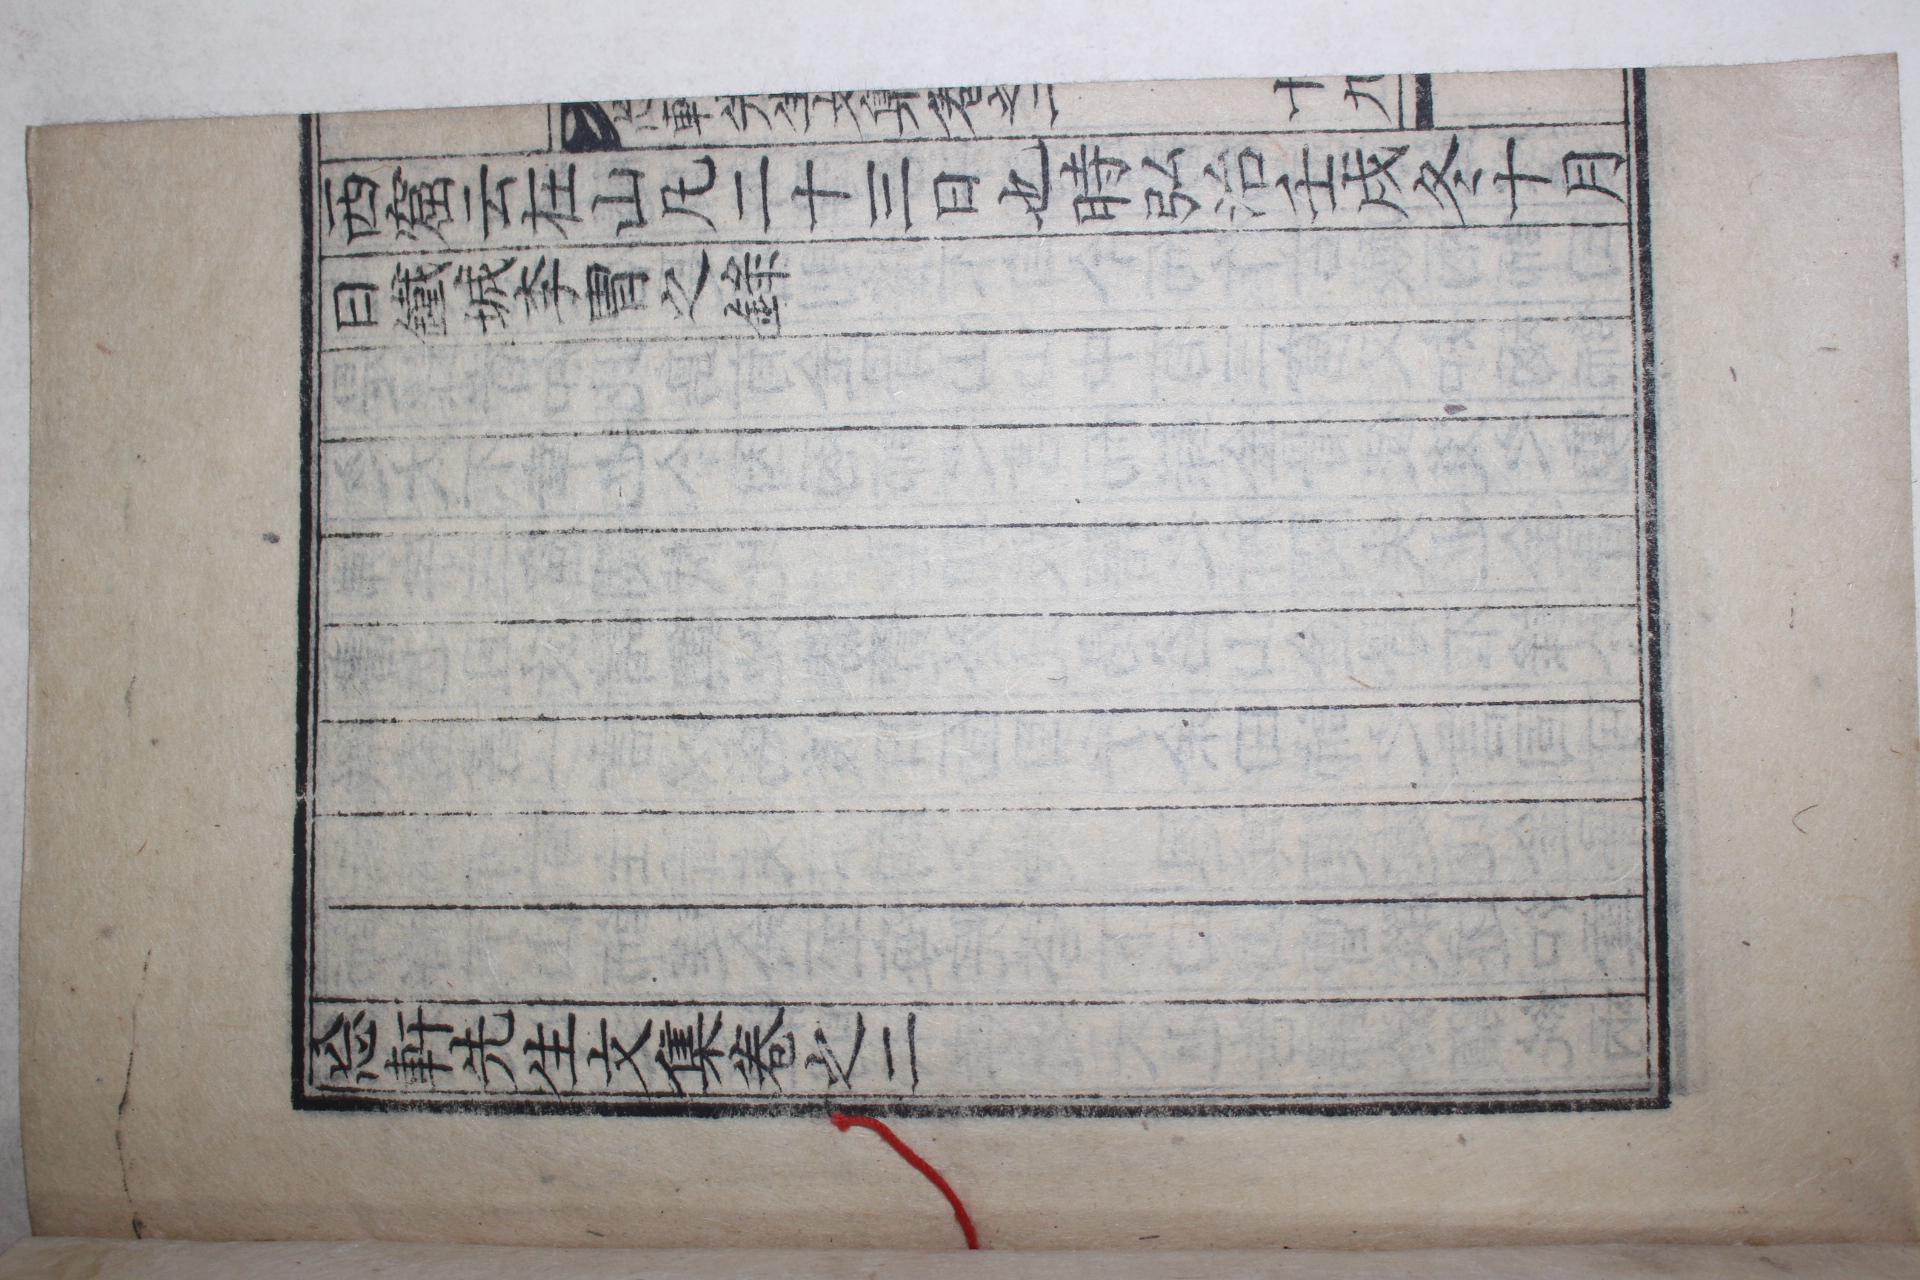 忘軒先生文集卷之二
十九
西窟云在山凡二十三日也時弘治壬戌冬十月
日鐵城李胄之錄
忘軒先生文集卷之二